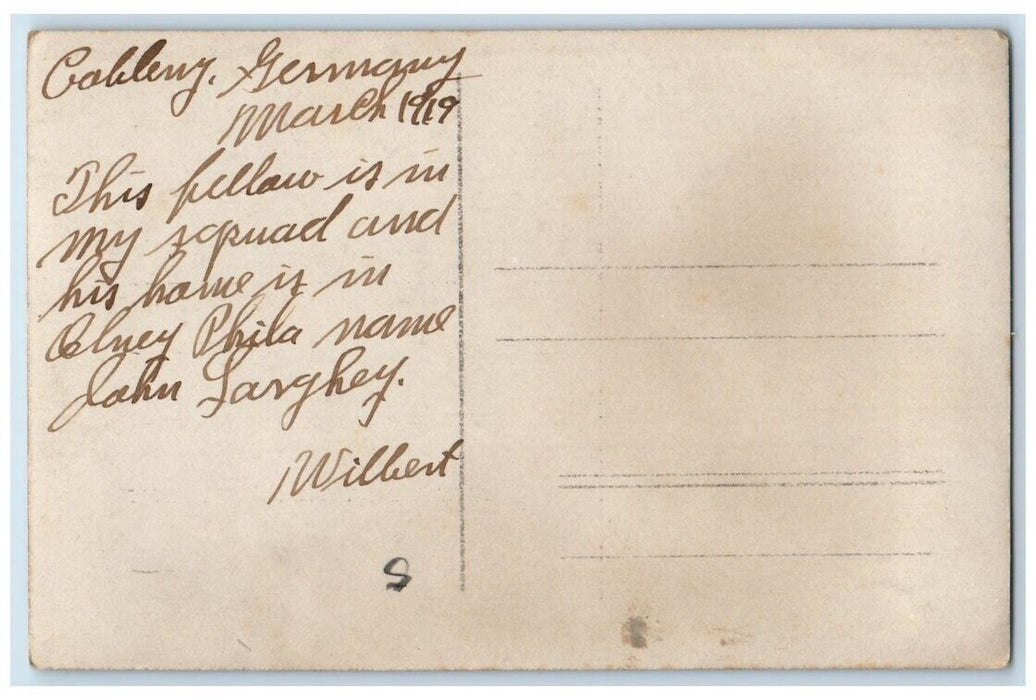 Coblenz, Germany
March 1919
This fellow is in
my squad and
his home is in
Olney Phila name
John Larghey.
Wilbert
S